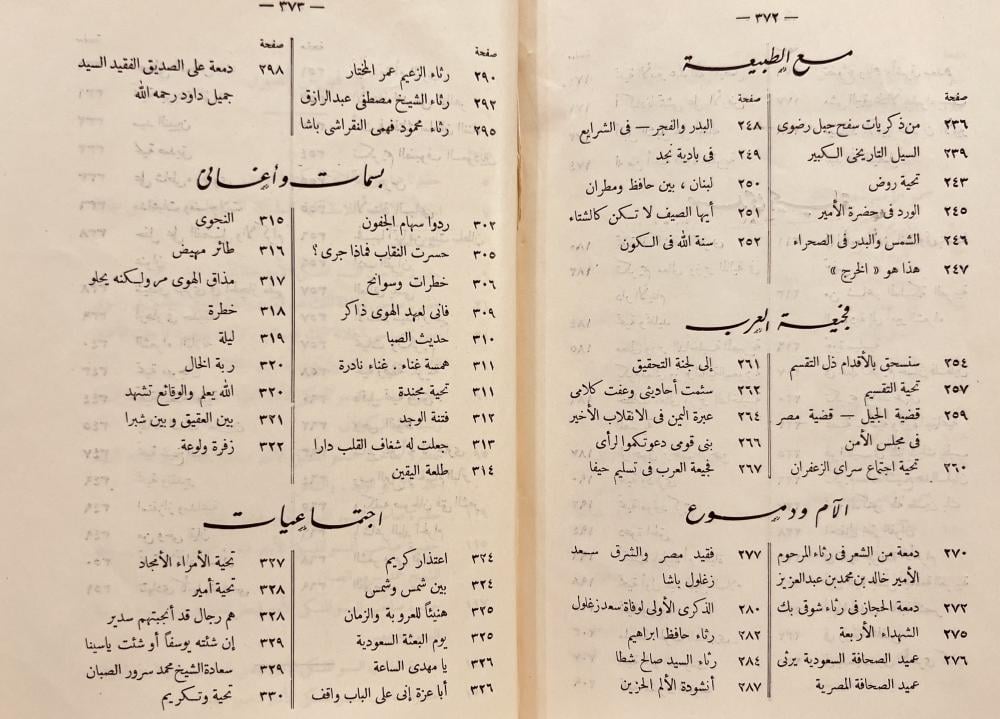 — ٣٧٢ —
مع الطبيعة
صفحة
٢٣٦ من ذكريات سفح جبل رضوى
٢٣٩ السيل التاريخى الكبير
٢٤٣ تحية روض
٢٤٥ الورد فى حضرة الأمير
٢٤٦ الشمس والبدر فى الصحراء
٢٤٧ هذا هو « الخرج »
صفحة
٢٤٨ البدر والفجر — فى الشرايع
٢٤٩ فى بادية نجد
٢٥٠ لبنان ، بين حافظ ومطران
٢٥١ أيها الصيف لا تكن كالشتاء
٢٥٢ سنة الله فى الكون
فجيعة العرب
٢٥٤ سنسحق بالأقدام ذل التقسم
٢٥٧ تحية التقسيم
٢٥٩ قضية الجيل — قضية مصر
فى مجلس الأمن
٢٦٠ تحية اجتماع سراى الزعفران
٢٦١ إلى لجنة التحقيق
٢٦٢ سئمت أحاديثى وعفت كلامى
٢٦٤ عبرة اليمن فى الانقلاب الأخير
٢٦٦ بنى قومى دعوتكموا لرأى
٢٦٧ فجيعة العرب فى تسليم حيفا
آلام ودموع
٢٧٠ دمعة من الشعر فى رثاء المرحوم
الأمير خالد بن محمد بن عبد العزيز
٢٧٢ دمعة الحجاز فى رثاء شوقى بك
٢٧٥ الشهداء الأربعة
٢٧٦ عميد الصحافة السعودية يرثى
عميد الصحافة المصرية
٢٧٧ فقيد مصر والشرق سعد
زغلول باشا
٢٨٠ الذكرى الأولى لوفاة سعد زغلول
٢٨٢ رثاء حافظ ابراهيم
٢٨٤ رثاء السيد صالح شطا
٢٨٧ أنشودة الألم الحزين
— ٣٧٣ —
صفحة
٢٩٠ رثاء الزعيم عمر المختار
٢٩٢ رثاء الشيخ مصطفى عبد الرازق
٢٩٥ رثاء محمود فهمى النقراشى باشا
صفحة
٢٩٨ دمعة على الصديق الفقيد السيد
جميل داود رحمه الله
بسمات وأغانى
٣٠٢ ردوا سهام الجفون
٣٠٥ حسرت النقاب فماذا جرى ؟
٣٠٦ خطرات وسوانح
٣٠٩ فانى لعهد الهوى ذاكر
٣١٠ حديث الصبا
٣١١ همسة غناء . غناء نادرة
٣١١ تحية مجندة
٣١٢ فتنة الوجد
٣١٣ جعلت له شغاف القلب دارا
٣١٤ طلعة اليقين
٣١٥ النجوى
٣١٦ طائر مهيض
٣١٧ مذاق الهوى مر ولكنه يحلو
٣١٨ خطرة
٣١٩ ليلة
٣٢٠ ربة الخال
٣٢٠ الله يعلم والوقائع تشهد
٣٢١ بين العقيق وبين شبرا
٣٢٢ زفرة ولوعة
اجتماعيات
٣٢٤ اعتذار كريم
٣٢٤ بين شمس وشمس
٣٢٥ هنيئاً للعروبة والزمان
٣٢٥ يوم البعثة السعودية
٣٢٦ يا مهدى الساعة
٣٢٦ أبا عزة إنى على الباب واقف
٣٢٧ تحية الأمراء الأمجاد
٣٢٨ تحية أمير
٣٢٨ هم رجال قد أنجبتهم سدير
٣٢٩ إن شئته يوسفاً أو شئت ياسينا
٣٢٩ سعادة الشيخ محمد سرور الصبان
٣٣٠ تحية وتكريم